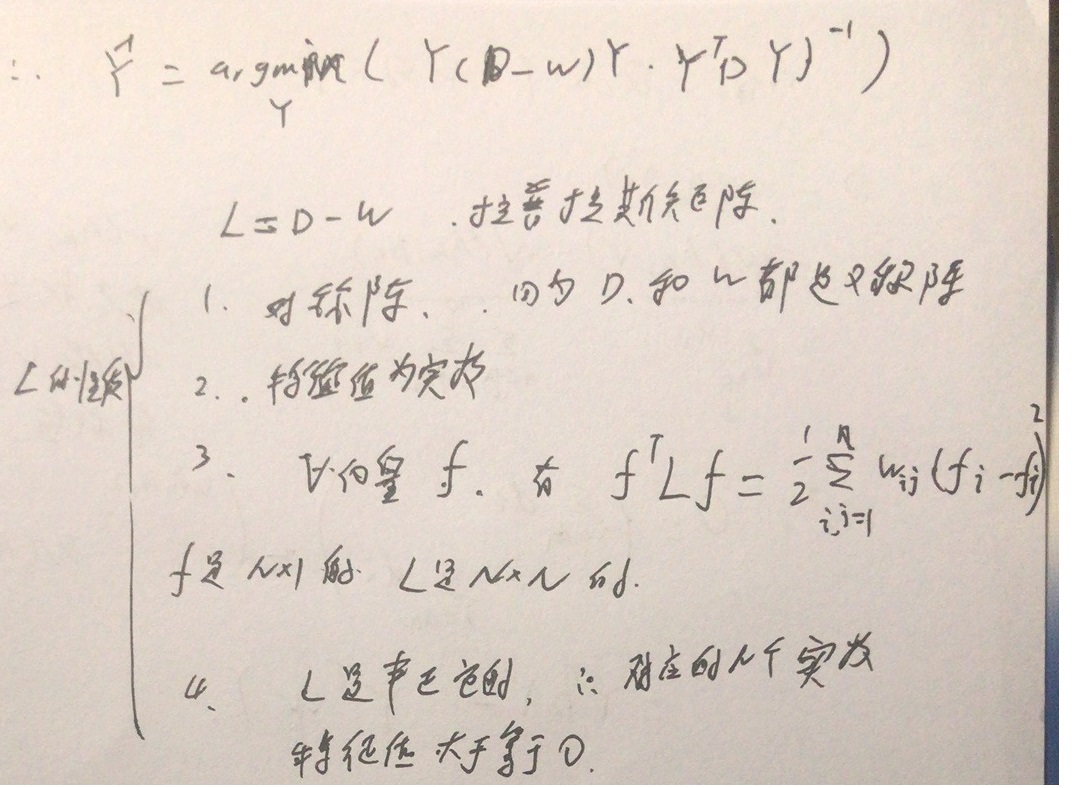 ∴ Ŷ = argmin ( Y(D-W)Y · Y^T D Y)^{-1} )
Y
L = D - W . 拉普拉斯矩阵.
1. 对称阵、. 因为 D、和 W 都是对称阵
L的性质
2. . 特征值为实数
3. ∀向量 f. 有 f^T L f = 1/2 Σ_{i,j=1}^{n} w_{ij} (f_i - f_j)^2
f是 N×1 的. L是 N×N 的.
4. L是半正定的, ∴ 对应的N个实数
特征值大于等于0.